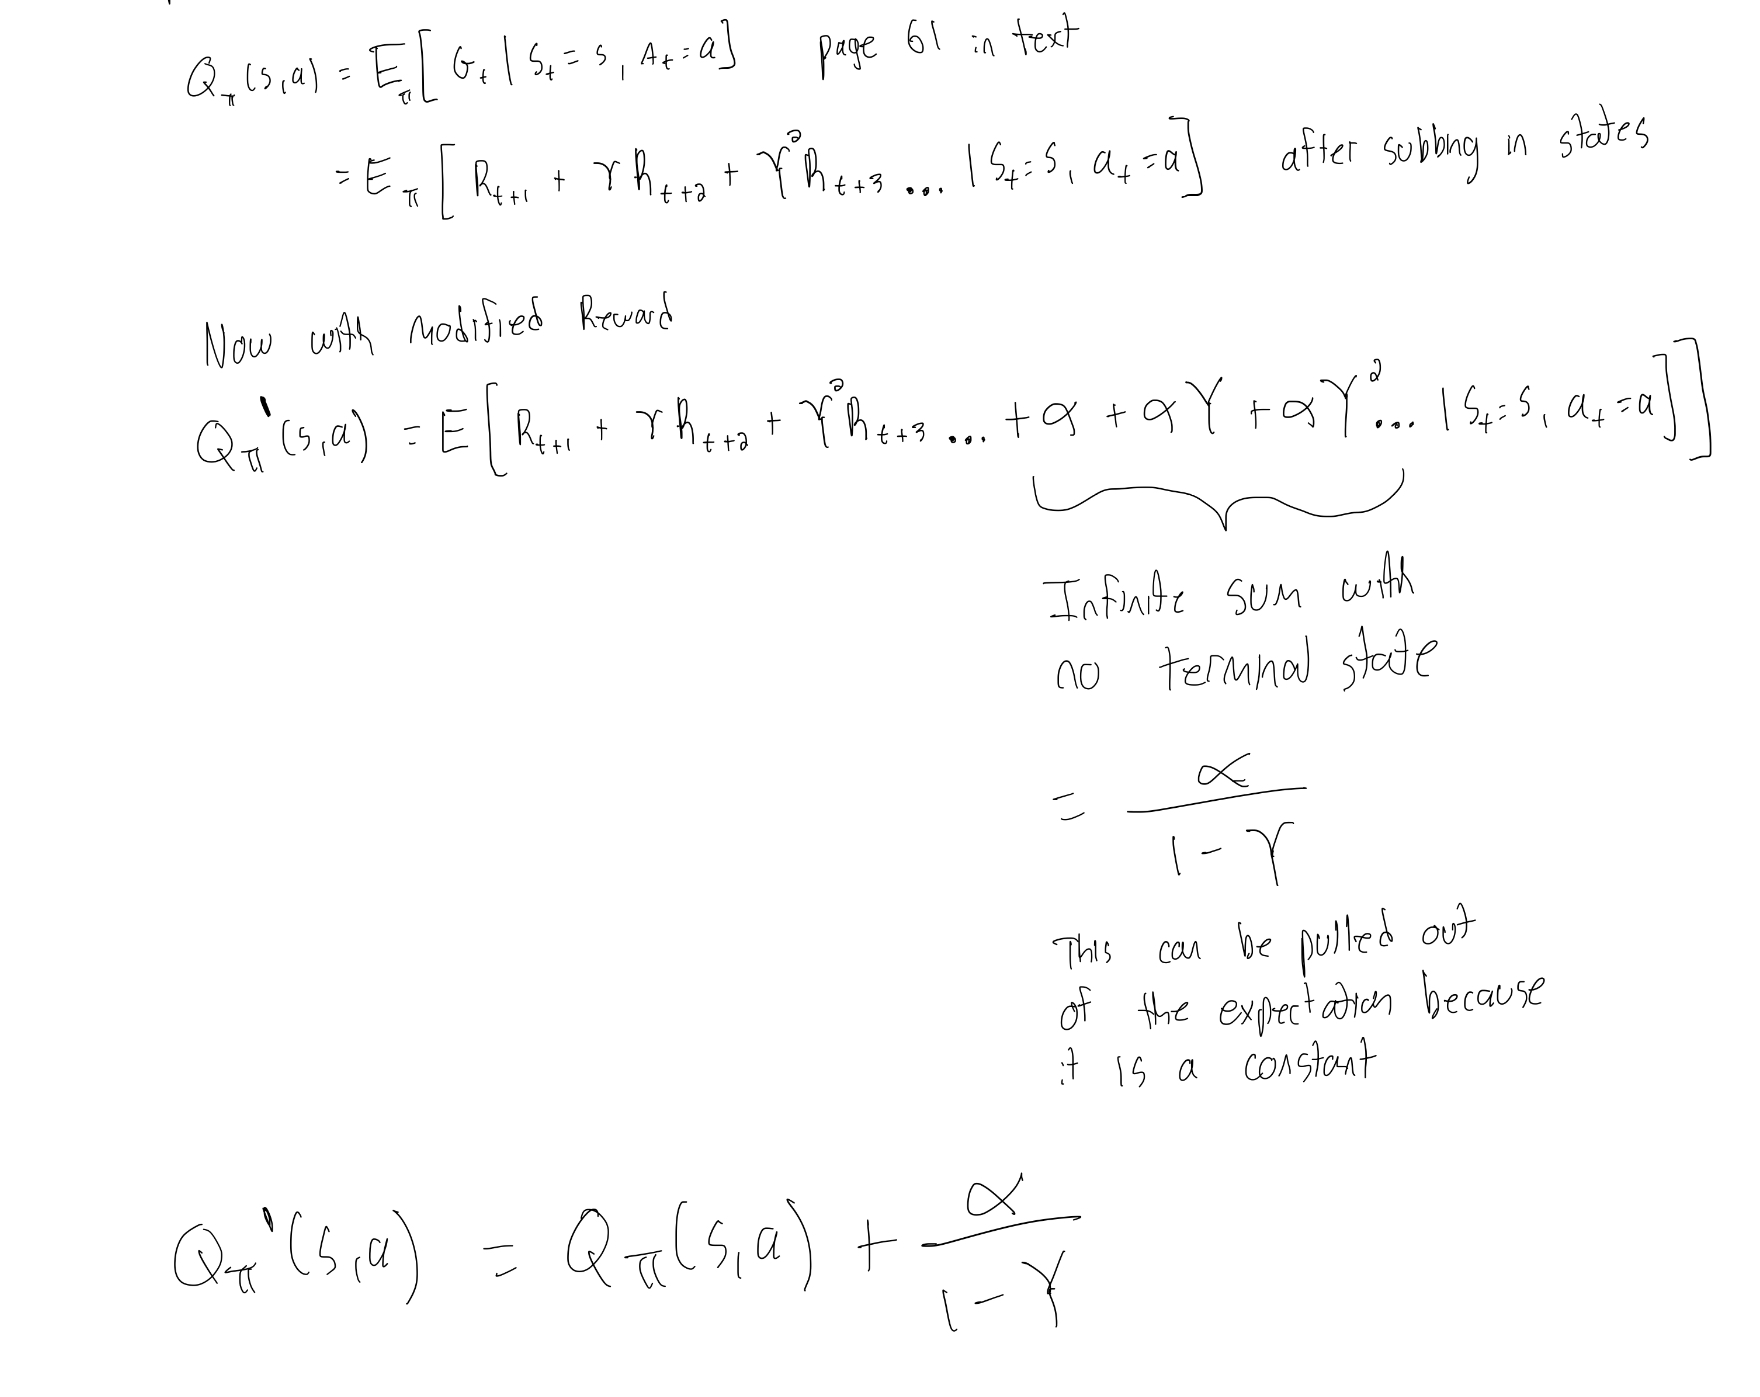 Q_π(s,a) = E_π[G_t | S_t = s, A_t = a] page 61 in text
= E_π[R_{t+1} + γR_{t+2} + γ²R_{t+3} ... | S_t = s, a_t = a] after subbng in states
Now with modified Reward
Q_π'(s,a) = E[R_{t+1} + γR_{t+2} + γ²R_{t+3} ... + α + αγ + αγ² ... | S_t = s, a_t = a]]
Infinite sum with
no terminal state
= α / (1 - γ)
This can be pulled out
of the expectation because
it is a constant
Q_π'(s,a) = Q_π(s,a) + α / (1 - γ)